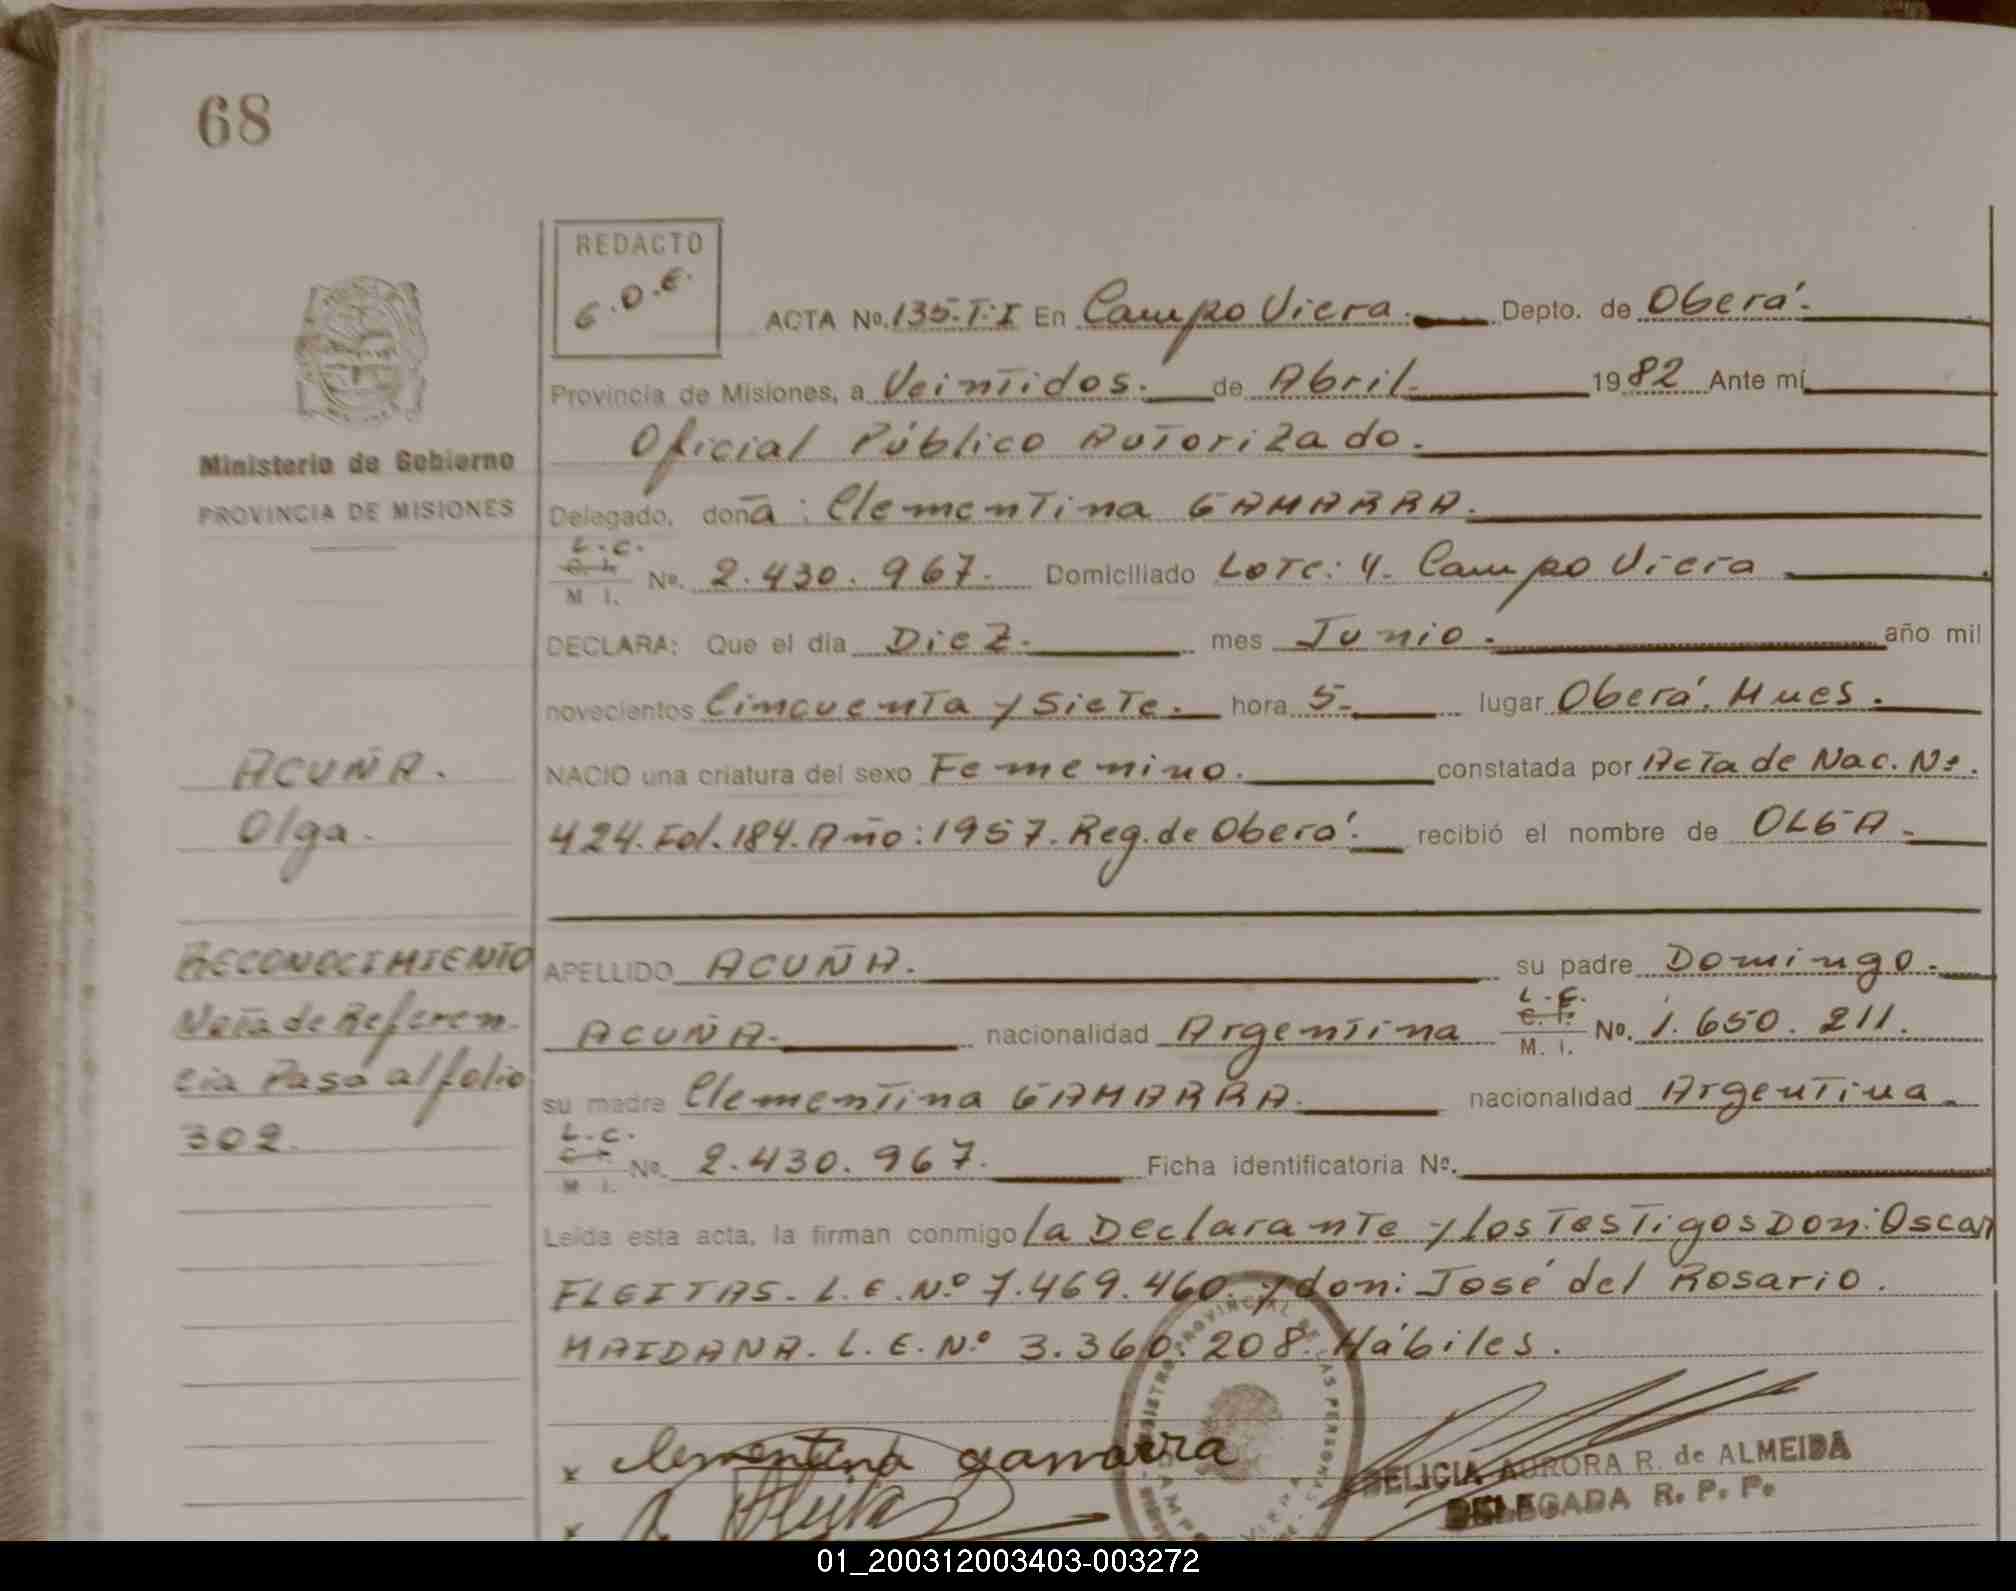 68
REDACTO
G.O.E.
ACTA No. 135-T:I En Campo Viera. Depto. de Oberá.
Provincia de Misiones, a Veintidos. de Abril. 1982 Ante mí
Oficial Público Autorizado.
Ministerio de Gobierno
PROVINCIA DE MISIONES
Delegado, doña: Clementina GAMARRA.
L.C.
C. I.
M. I.
No. 2.430.967. Domiciliado Lote: 4. Campo Viera
DECLARA: Que el día Diez. mes Junio. año mil
novecientos Cincuenta y Siete. hora 5- lugar Oberá. Mnes.
ACUÑA.
Olga.
NACIO una criatura del sexo Femenino. constatada por Acta de Nac. Nº.
424. Fol. 184. Año: 1957. Reg. de Oberá. recibió el nombre de OLGA.
RECONOCIMIENTO
Nota de Referen-
cia Pasa al folio
302.
APELLIDO ACUÑA. su padre Domingo.
L.E.
C. I.
M. I.
ACUÑA. nacionalidad Argentina No. 1.650.211.
su madre Clementina GAMARRA. nacionalidad Argentina.
L.C.
C. I.
M. I.
No. 2.430.967. Ficha identificatoria Nº.
Leída esta acta, la firman conmigo la Declarante y los Testigos Don: Oscar
FLEITAS. L.E.Nº 7.469.460. y don: José del Rosario.
MAIDANA. L.E.Nº 3.360.208. Hábiles.
x Clementina gamarra
DELICIA AURORA R. de ALMEIDA
DELEGADA R. P. P.
x
01_200312003403-003272